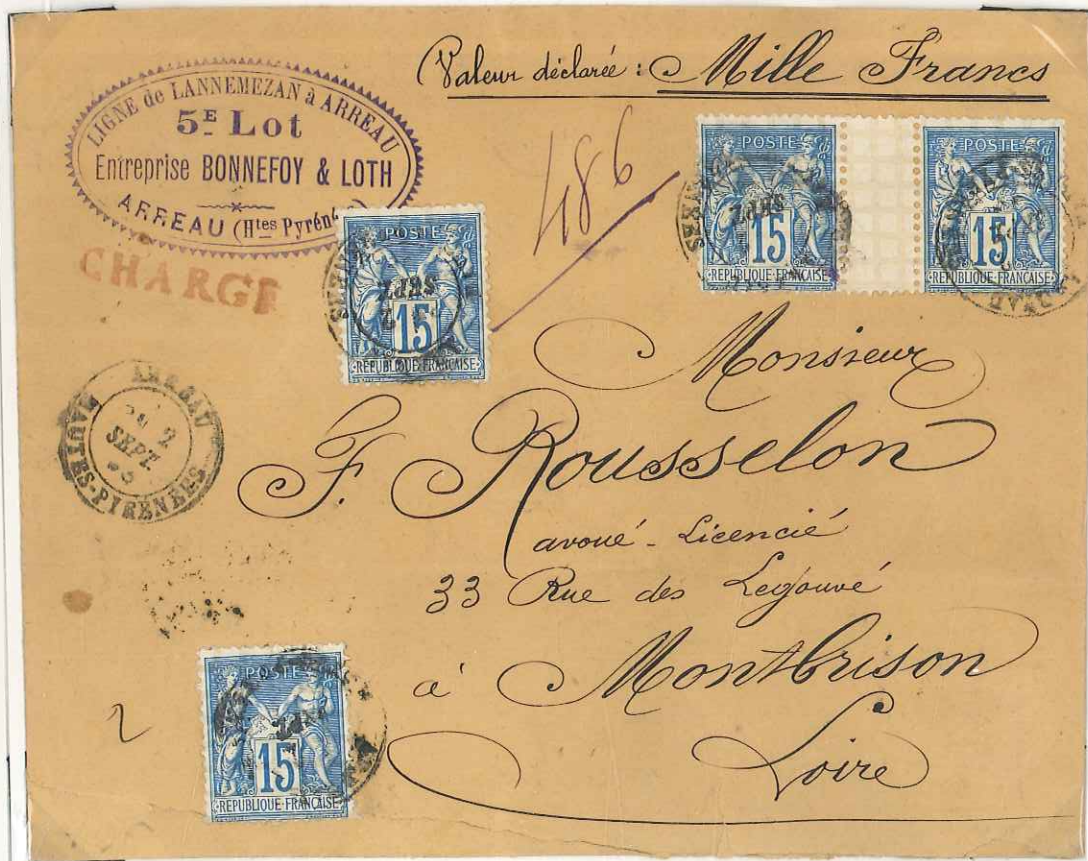 Valeur déclarée : Mille Francs
LIGNE de LANNEMEZAN à ARREAU
5E Lot
Entreprise BONNEFOY & LOTH
ARREAU (Htes Pyréné
CHARGE
486
POSTE
15
REPUBLIQUE FRANÇAISE
POSTE
15
REPUBLIQUE FRANÇAISE
POSTE
SEPT
15
REPUBLIQUE FRANÇAISE
Monsieur
F. Rousselon
avoué - Licencié
33 Rue des Legouvé
à Montbrison
Loire
ARREAU
2
SEPT
HAUTES-PYRÉNÉES
POSTE
15
REPUBLIQUE FRANÇAISE
2